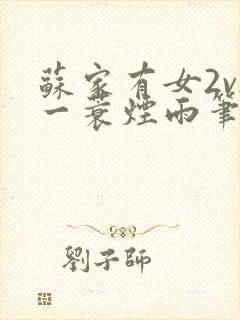 蘇家有女2v
一蓑煙雨筆
劉子師